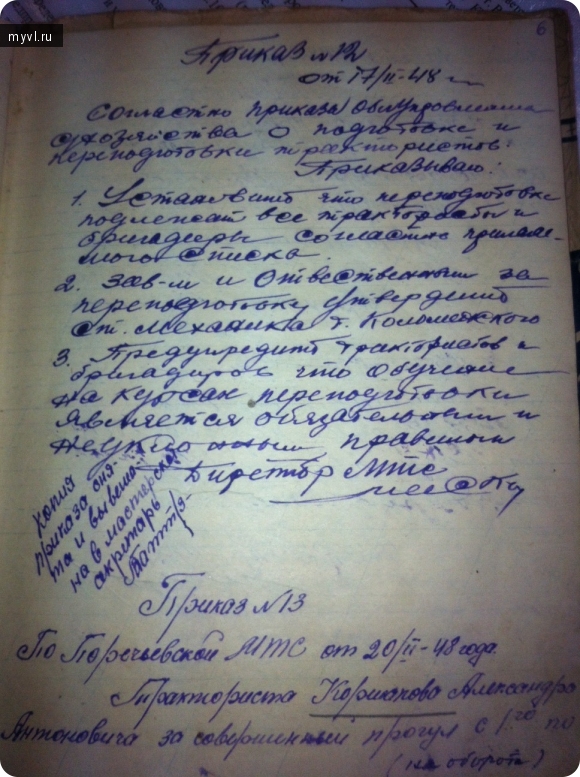 myvl.ru
6
Приказ №12
от 17/II-48 г
Согласно приказа Облуправления
с/хозяйства о подготовке и
переподготовки трактористов:
Приказываю:
1. Установить что переподготовке
подлежат все трактористы и
бригадиры согласно прилаге-
мого списка.
2. Зав-м и Отвественным за
переподготовку утвердить
ст. механика т. Коломежского
3. Предупредить трактористов и
бригадиров что обучение
на курсах переподготовки
является обязательным и
неуклонным правилом
Директор МТС
копия
приказа сня-
та и вывеше-
на в мастерской
Приказ №13
По Поречьевской МТС от 20/II-48 года.
Тракториста Корикчова Александра
Антоновича за совершенный прогул с 1го по
(на обороте)